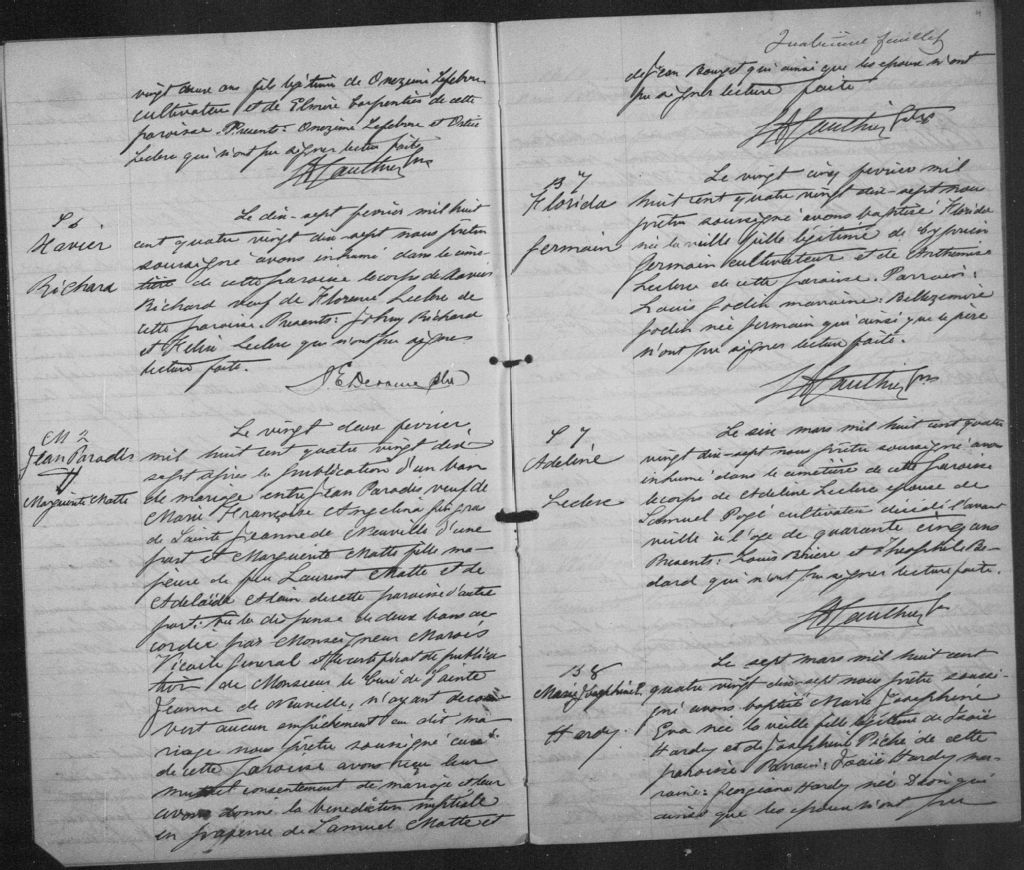 vingt deux ans fils légitime de Onezime Lefebvre
cultivateur et de Elmire Carpentier de cette
paroisse. Presents: Onezime Lefebvre et
Leclerc qui n'ont pu signer lecture faite
Gauthier Ptre
S 6
Xavier
Richard
Le dix-sept fevrier mil huit
cent quatre vingt dix-sept nous prêtre
soussigné avons inhumé dans le cime-
tière de cette paroisse le corps de Xavier
Richard veuf de Florence Leclerc de
cette paroisse. Presents: Johny Richard
et Felix Leclerc qui n'ont pu signer
lecture faite.
Ptre
M 2
Jean Paradis
&
Marguerite Matte
Le vingt deux février,
mil huit cent quatre vingt dix-
sept après la publication d'un ban
de mariage entre Jean Paradis veuf de
Marie Françoise Angelina
de Sainte Jeanne de Neuville d'une
part et Marguerite Matte fille ma-
jeure de feu Laurent Matte et de
Adelaïde Alain de cette paroisse d'autre
part: vu la dispense de deux bans ac-
cordée par Monseigneur Marois
Vicaire General et le certificat de publica-
tion de Monsieur le Curé de Sainte
Jeanne de Neuville, n'ayant decou-
vert aucun empêchement au dit ma-
riage nous prêtre soussigné curé
de cette paroisse avons reçu leur
mutuel consentement de mariage et leur
avons donné la bénédiction nuptiale
en presence de Samuel Matte et
Quatrième feuillet
de Jean Bourget qui ainsi que les epoux n'ont
pu signer lecture faite
Gauthier Ptre
B 7
Florida
Germain
Le vingt cinq fevrier mil
huit cent quatre vingt dix-sept nous
prêtre soussigné avons baptisé Florida
née la veille fille légitime de Cyprien
Germain cultivateur et de Arthemise
Leclerc de cette paroisse. Parrain:
Louis Godin marraine: Bellezemire
Godin née Germain qui ainsi que le père
n'ont pu signer lecture faite.
Gauthier Ptre
S 7
Adeline
Leclerc
Le six mars mil huit cent quatre
vingt dix-sept nous prêtre soussigné avons
inhumé dans le cimetière de cette paroisse
le corps de Adeline Leclerc epouse de
Samuel Pagé cultivateur décédée l'avant
veille à l'age de quarante cinq ans
Presents: Louis Briere et Theophile Be-
dard qui n'ont pu signer lecture faite.
Gauthier Ptre
B 8
Marie Josephine E.
Hardy
Le sept mars mil huit cent
quatre vingt dix-sept nous prêtre soussi-
gné avons baptisé Marie Josephine
Eva née la veille fille légitime de Isaïe
Hardy et de Josephine Piché de cette
paroisse. Parrain: Isaïe Hardy mar-
raine: Georgiane Hardy née Dion qui
ainsi que les epoux n'ont pu